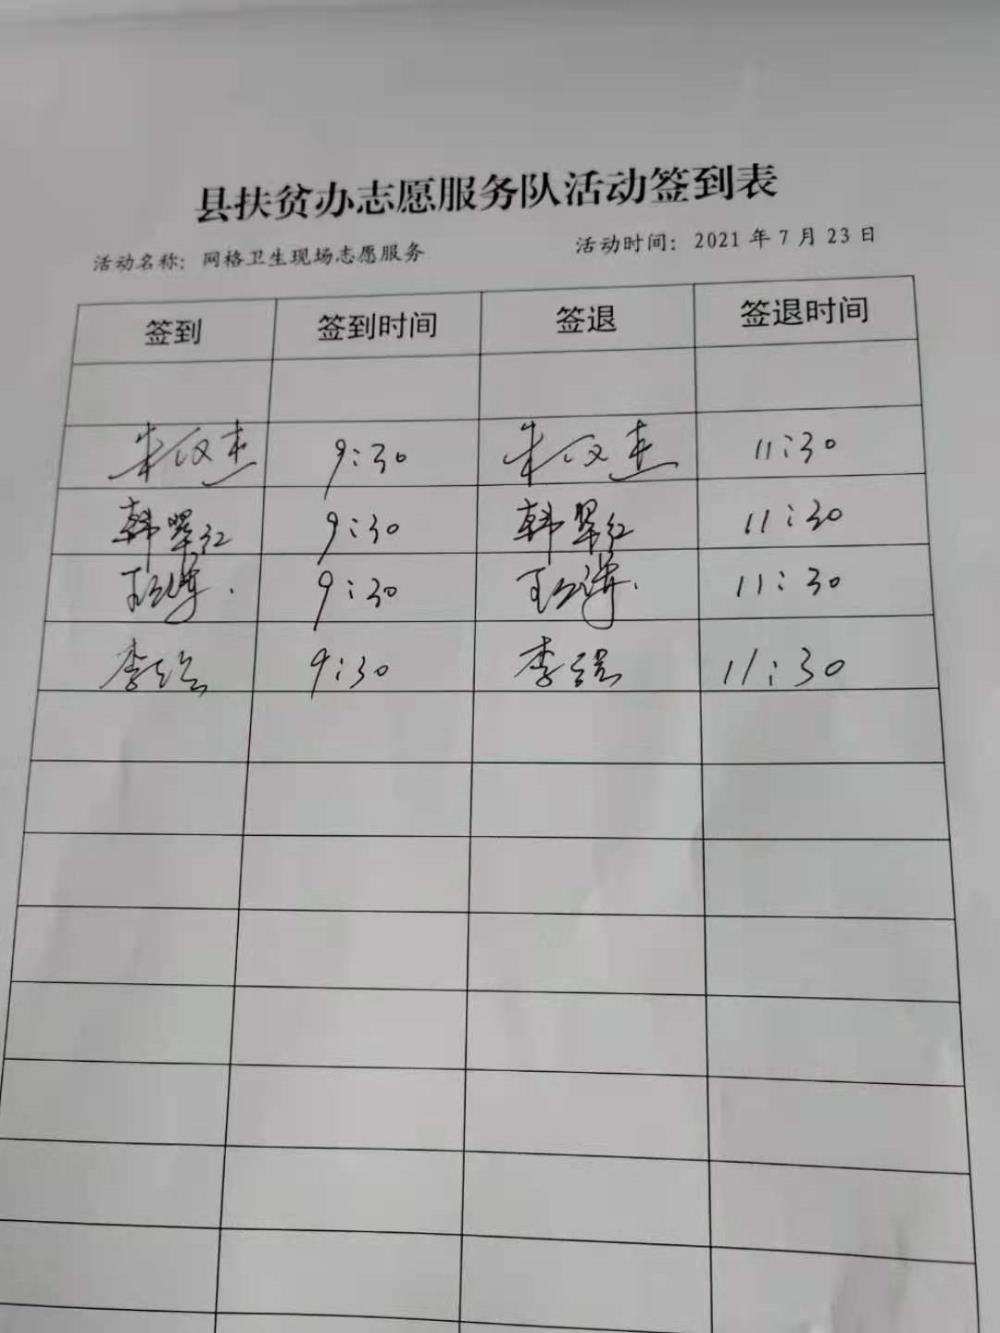 县扶贫办志愿服务队活动签到表
活动名称：网格卫生现场志愿服务 活动时间：2021年7月23日
签到 签到时间 签退 签退时间
朱汉杰 9:30 朱汉杰 11:30
韩翠红 9:30 韩翠红 11:30
9:30 11:30
李 9:30 李 11:30